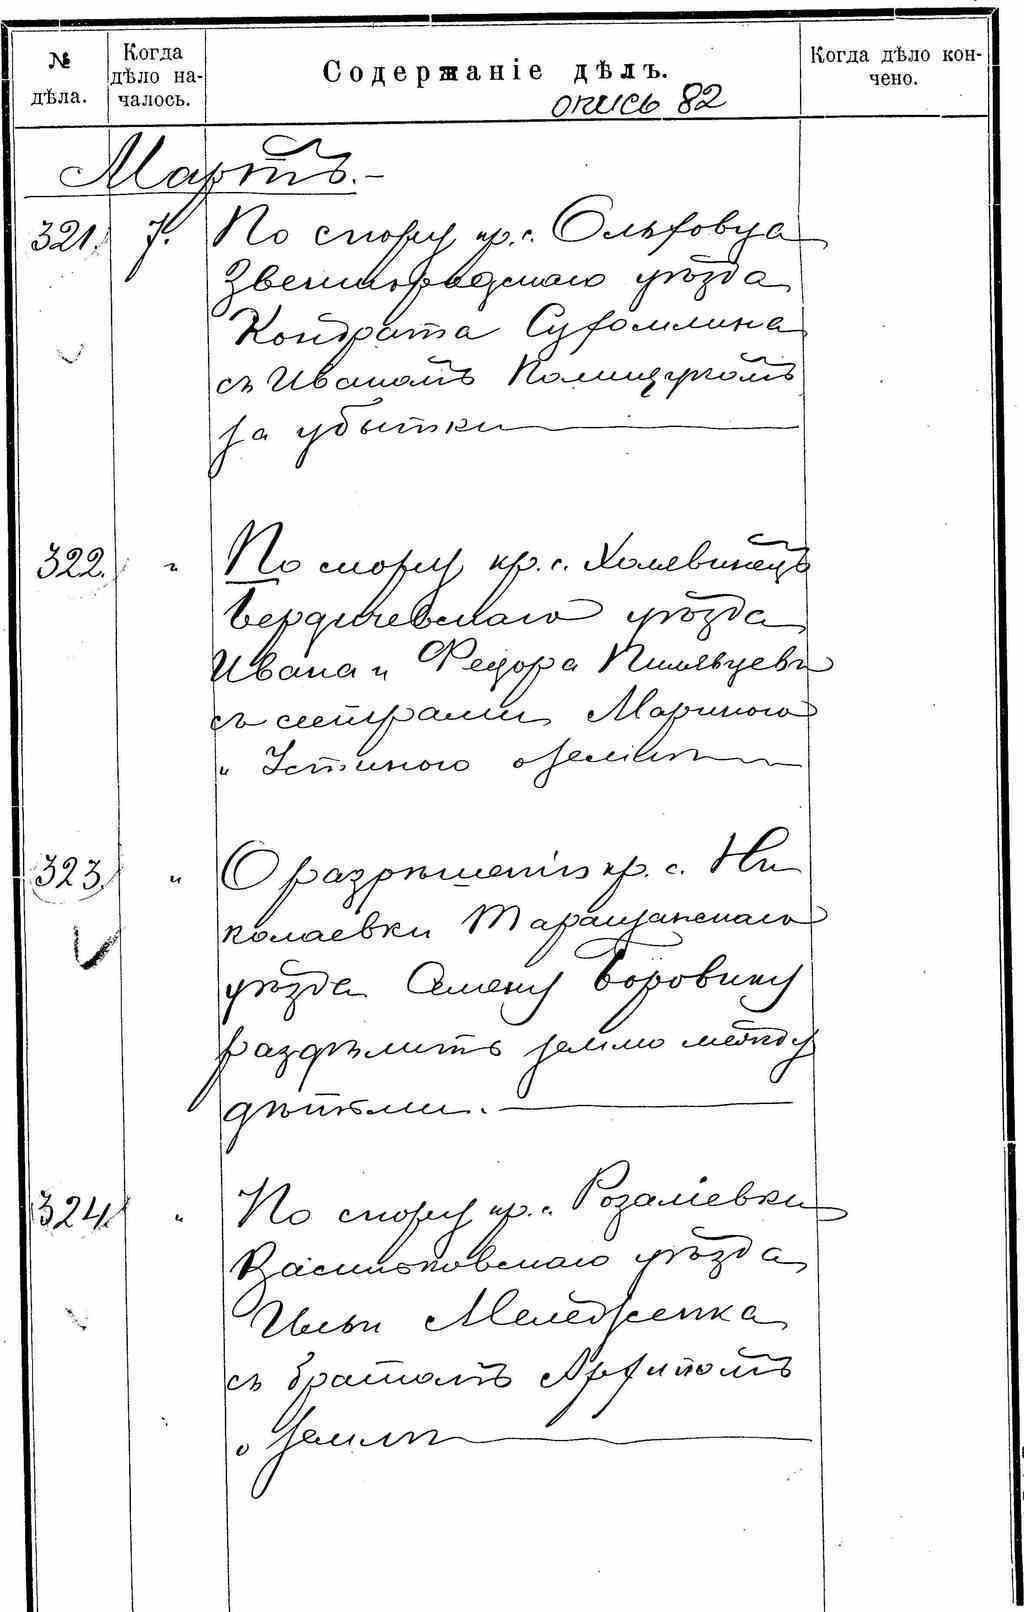 № дѣла.
Когда дѣло на-
чалось.
Содержаніе дѣлъ.
опись 82
Когда дѣло кон-
чено.
Мартъ.-
321. 7. По спору кр. с. Ольховца
Звенигородскаго уѣзда
Кондрата Сухомлина
съ Иваномъ
за убытки
322. " По спору кр. с. Холявинецъ
Бердичевскаго уѣзда
Ивана и Федора
съ сестрами Мариною
и Устиною о землѣ
323. " О разрѣшеніи кр. с. Ни
колаевки Таращанскаго
уѣзда Семену Боровику
раздѣлить землю между
дѣтьми.
324. " По спору кр. с. Розаліевки
Васильковскаго уѣзда
Ильи
съ братомъ Архипомъ
о землѣ